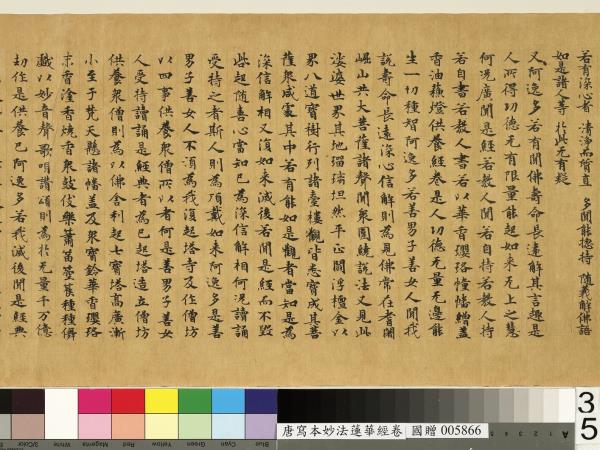 若有深心者 清淨而質直 多聞能揔持 隨義解佛語
如是諸人等 於此无有疑
又阿逸多若有聞佛壽命長遠解其言趣是
人所得功德无有限量能起如來无上之慧
何況廣聞是經若教人聞若自持若教人持
若自書若教人書若以華香瓔珞幢幡繒蓋
香油蘓燈供養經卷是人功德无量无邊能
生一切種智阿逸多若善男子善女人聞我
說壽命長遠深心信解則為見佛常在耆闍
崛山共大菩薩諸聲聞衆圍繞說法又見此
娑婆世界其地瑠璃坦然平正閻浮檀金以
界八道寶樹行列諸臺樓觀皆悉寶成其菩
薩衆咸處其中若有能如是觀者當知是為
深信解相又復如來滅後若聞是經而不毀
呰起隨喜心當知已為深信解相何況讀誦
受持之者斯人則為頂戴如來阿逸多是善
男子善女人不須為我復起塔寺及作僧坊
以四事供養衆僧所以者何是善男子善女
人受持讀誦是經典者為已起塔造立僧坊
供養衆僧則為以佛舍利起七寶塔高廣漸
小至于梵天懸諸幡盖及衆寶鈴華香瓔珞
末香塗香燒香衆鼓伎樂簫笛箜篌種種儛
戲以妙音聲歌唄讚頌則為於无量千万億
劫作是供養已阿逸多若我滅後聞是經典
唐寫本妙法蓮華經卷 國贈 005866
35
A
Blue Cyan Green Yellow Red Magenta White 3/Color Black